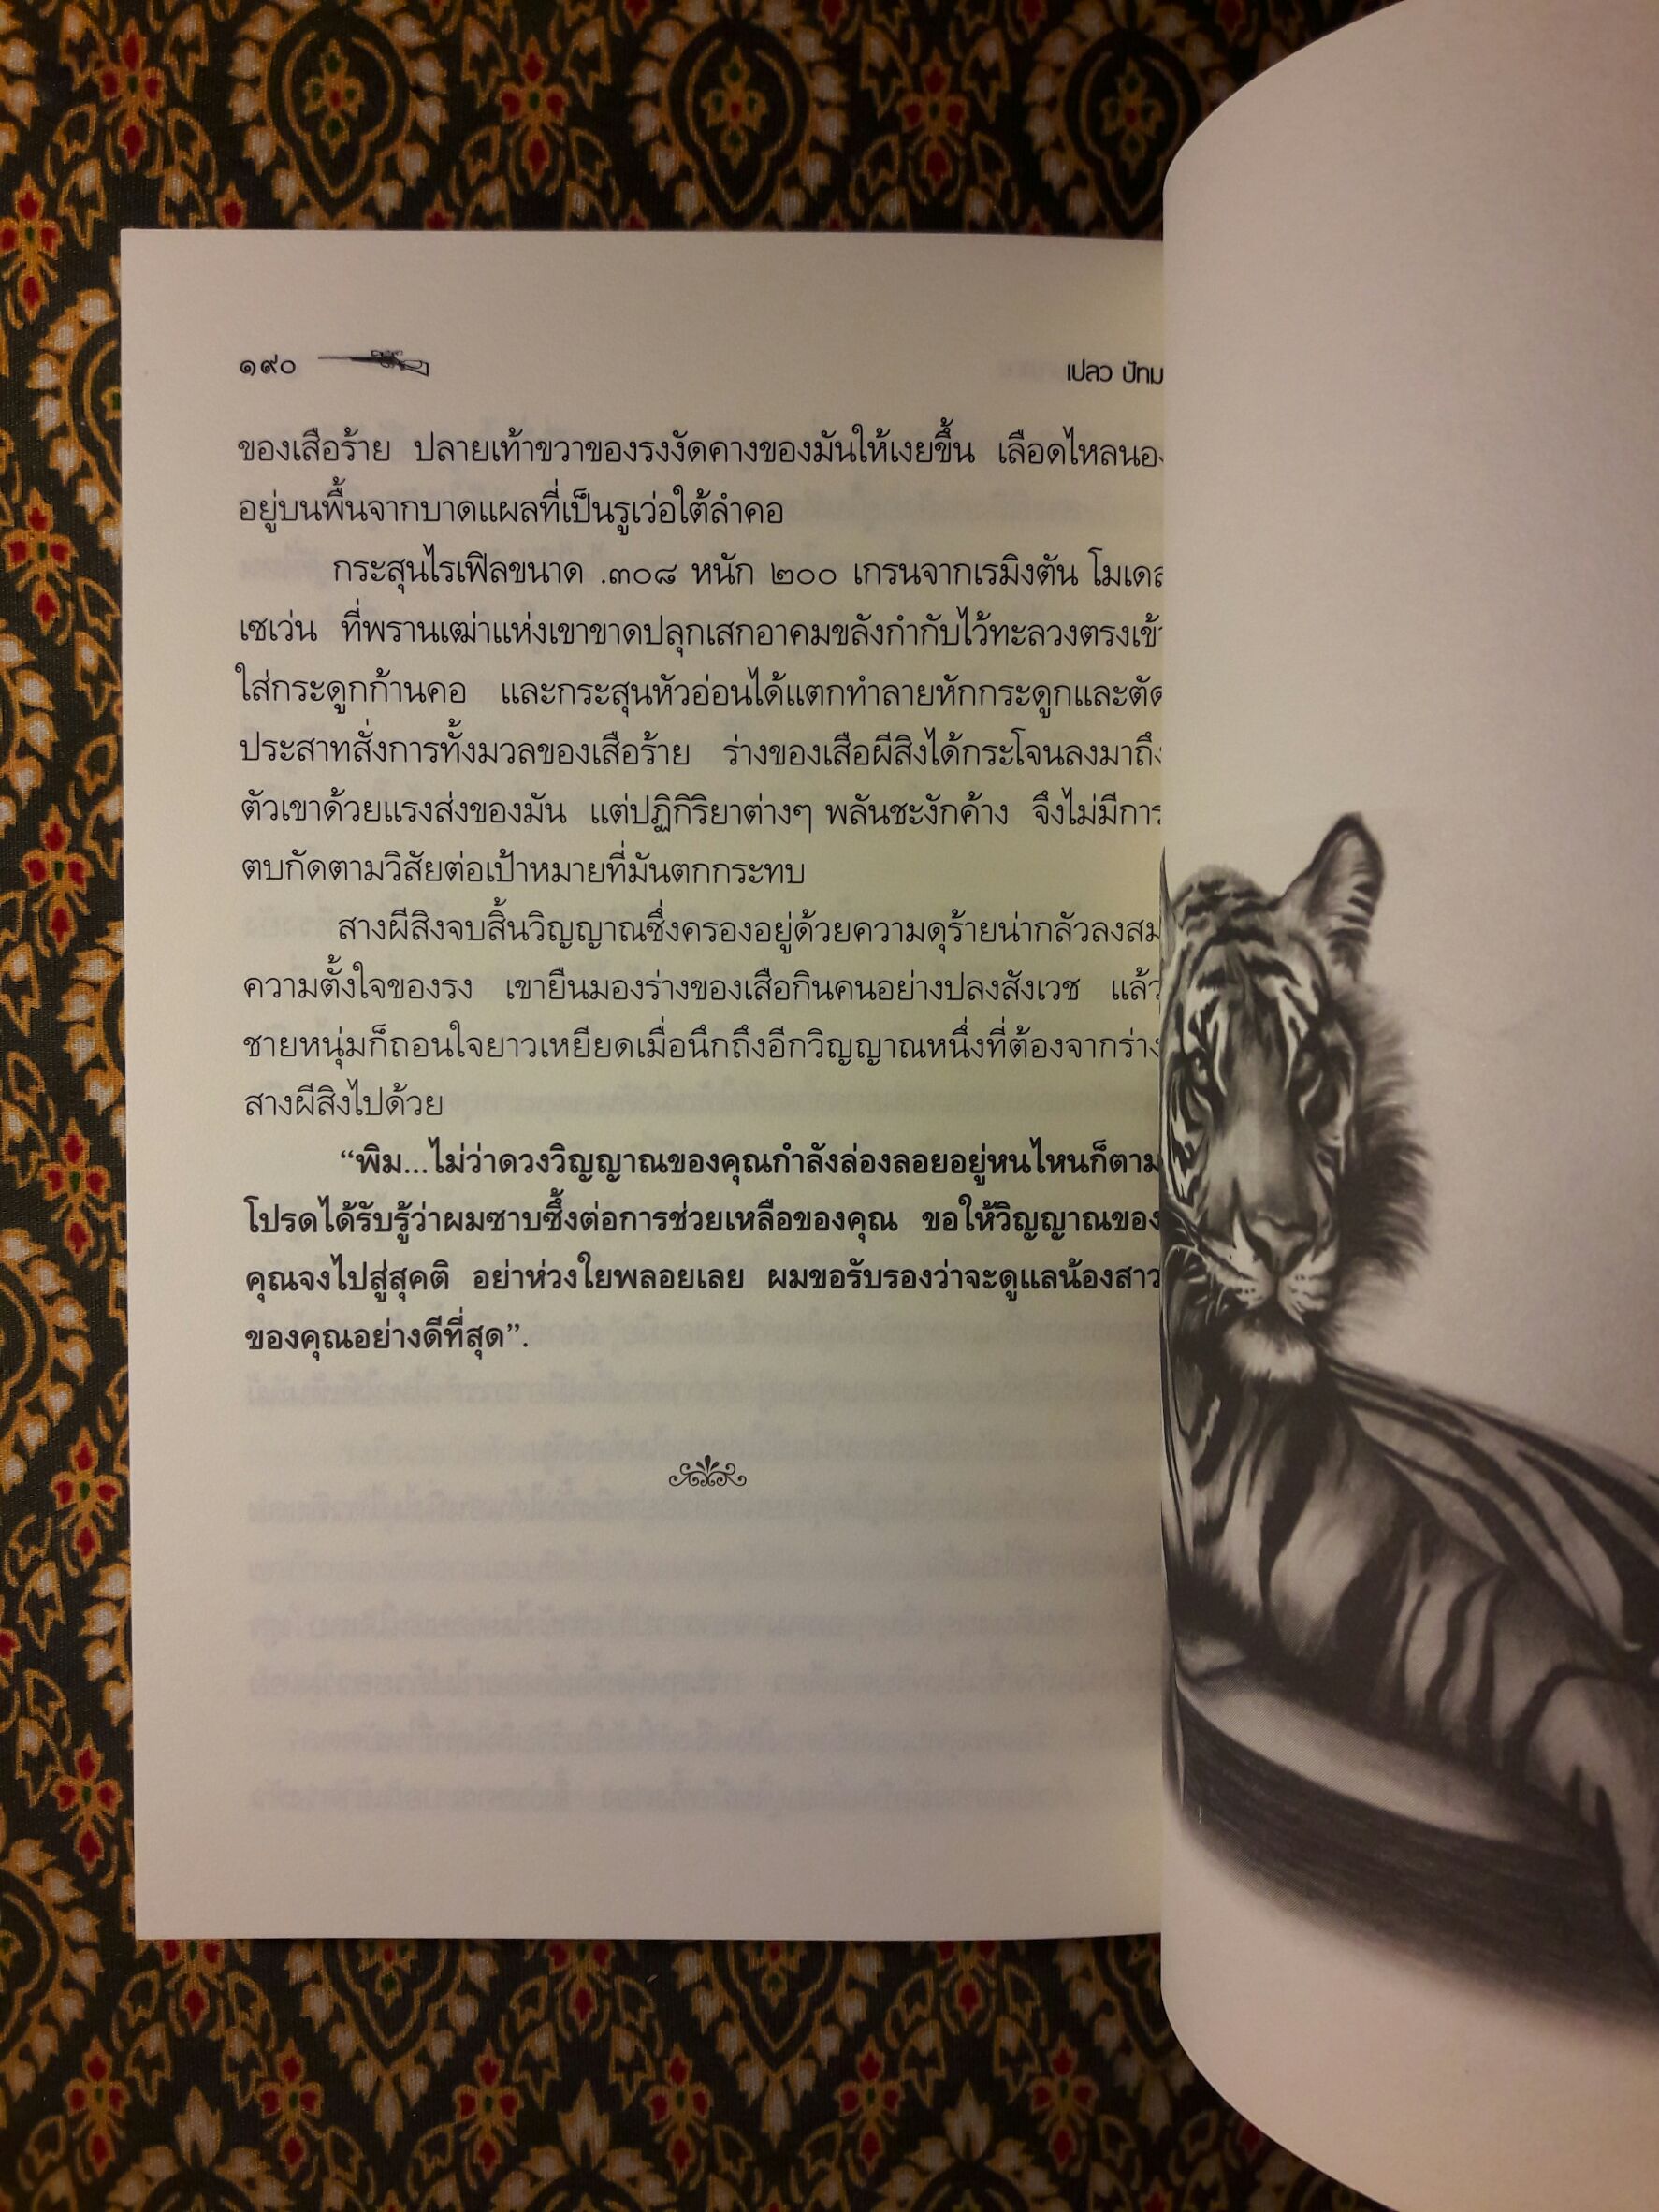 ๑๙๐ เปลว ปัทม
ของเสือร้าย ปลายเท้าขวาของรงงัดคางของมันให้เงยขึ้น เลือดไหลนอง
อยู่บนพื้นจากบาดแผลที่เป็นรูเว่อใต้ลำคอ
กระสุนไรเฟิลขนาด .๓๐๘ หนัก ๒๐๐ เกรนจากเรมิงตัน โมเดล
เซเว่น ที่พรานเฒ่าแห่งเขาขาดปลุกเสกอาคมขลังกำกับไว้ทะลวงตรงเข้า
ใส่กระดูกก้านคอ และกระสุนหัวอ่อนได้แตกทำลายหักกระดูกและตัด
ประสาทสั่งการทั้งมวลของเสือร้าย ร่างของเสือผีสิงได้กระโจนลงมาถึง
ตัวเขาด้วยแรงส่งของมัน แต่ปฏิกิริยาต่างๆ พลันชะงักค้าง จึงไม่มีการ
ตบกัดตามวิสัยต่อเป้าหมายที่มันตกกระทบ
สางผีสิงจบสิ้นวิญญาณซึ่งครองอยู่ด้วยความดุร้ายน่ากลัวลงสม
ความตั้งใจของรง เขายืนมองร่างของเสือกินคนอย่างปลงสังเวช แล้ว
ชายหนุ่มก็ถอนใจยาวเหยียดเมื่อนึกถึงอีกวิญญาณหนึ่งที่ต้องจากร่าง
สางผีสิงไปด้วย
“พิม...ไม่ว่าดวงวิญญาณของคุณกำลังล่องลอยอยู่หนไหนก็ตาม
โปรดได้รับรู้ว่าผมซาบซึ้งต่อการช่วยเหลือของคุณ ขอให้วิญญาณของ
คุณจงไปสู่สุคติ อย่าห่วงใยพลอยเลย ผมขอรับรองว่าจะดูแลน้องสาว
ของคุณอย่างดีที่สุด”.